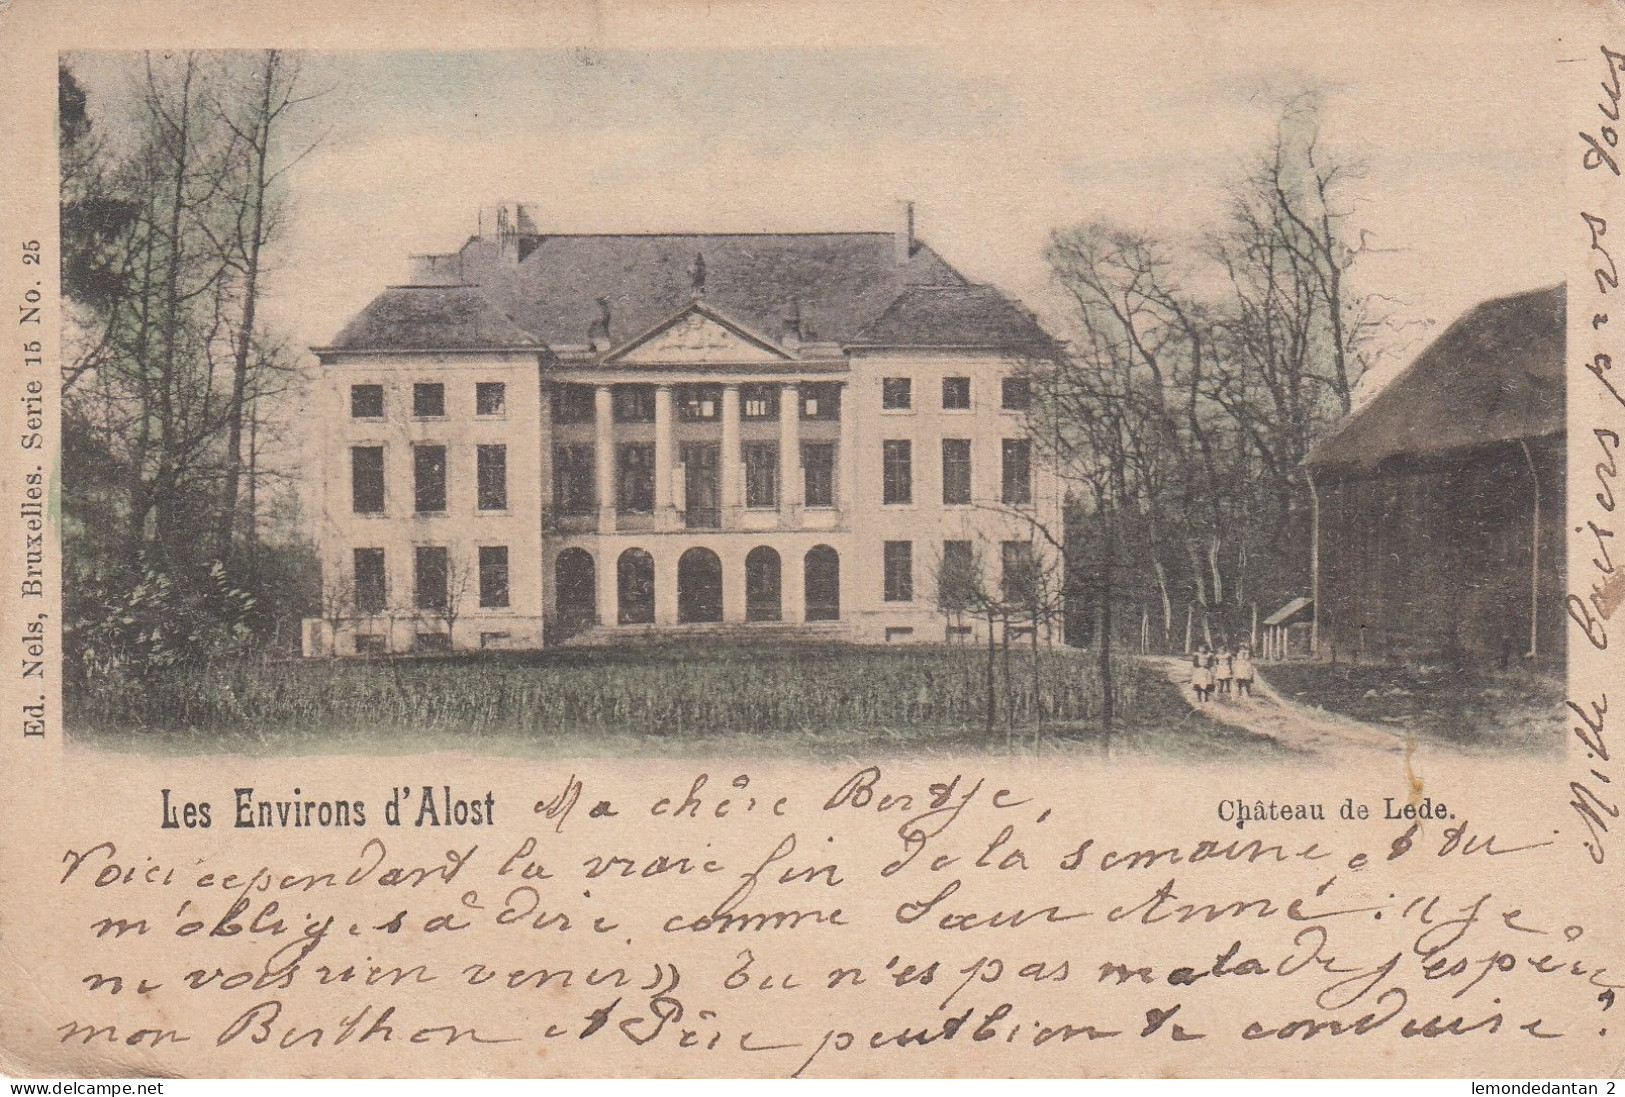 Ed. Nels, Bruxelles. Serie 15 No. 25
Les Environs d'Alost
Château de Lede.
Ma chère Bertje,
Voici cependant la vraie fin de la semaine, et tu
m'obliges à dire comme Sœur Anne : "je
ne vois rien venir» Tu n'es pas malade j'espère
mon Berthon et Père peut bien te conduire ?
Mille baisers pr vs tous
delcampe.net
lemondedantan 2